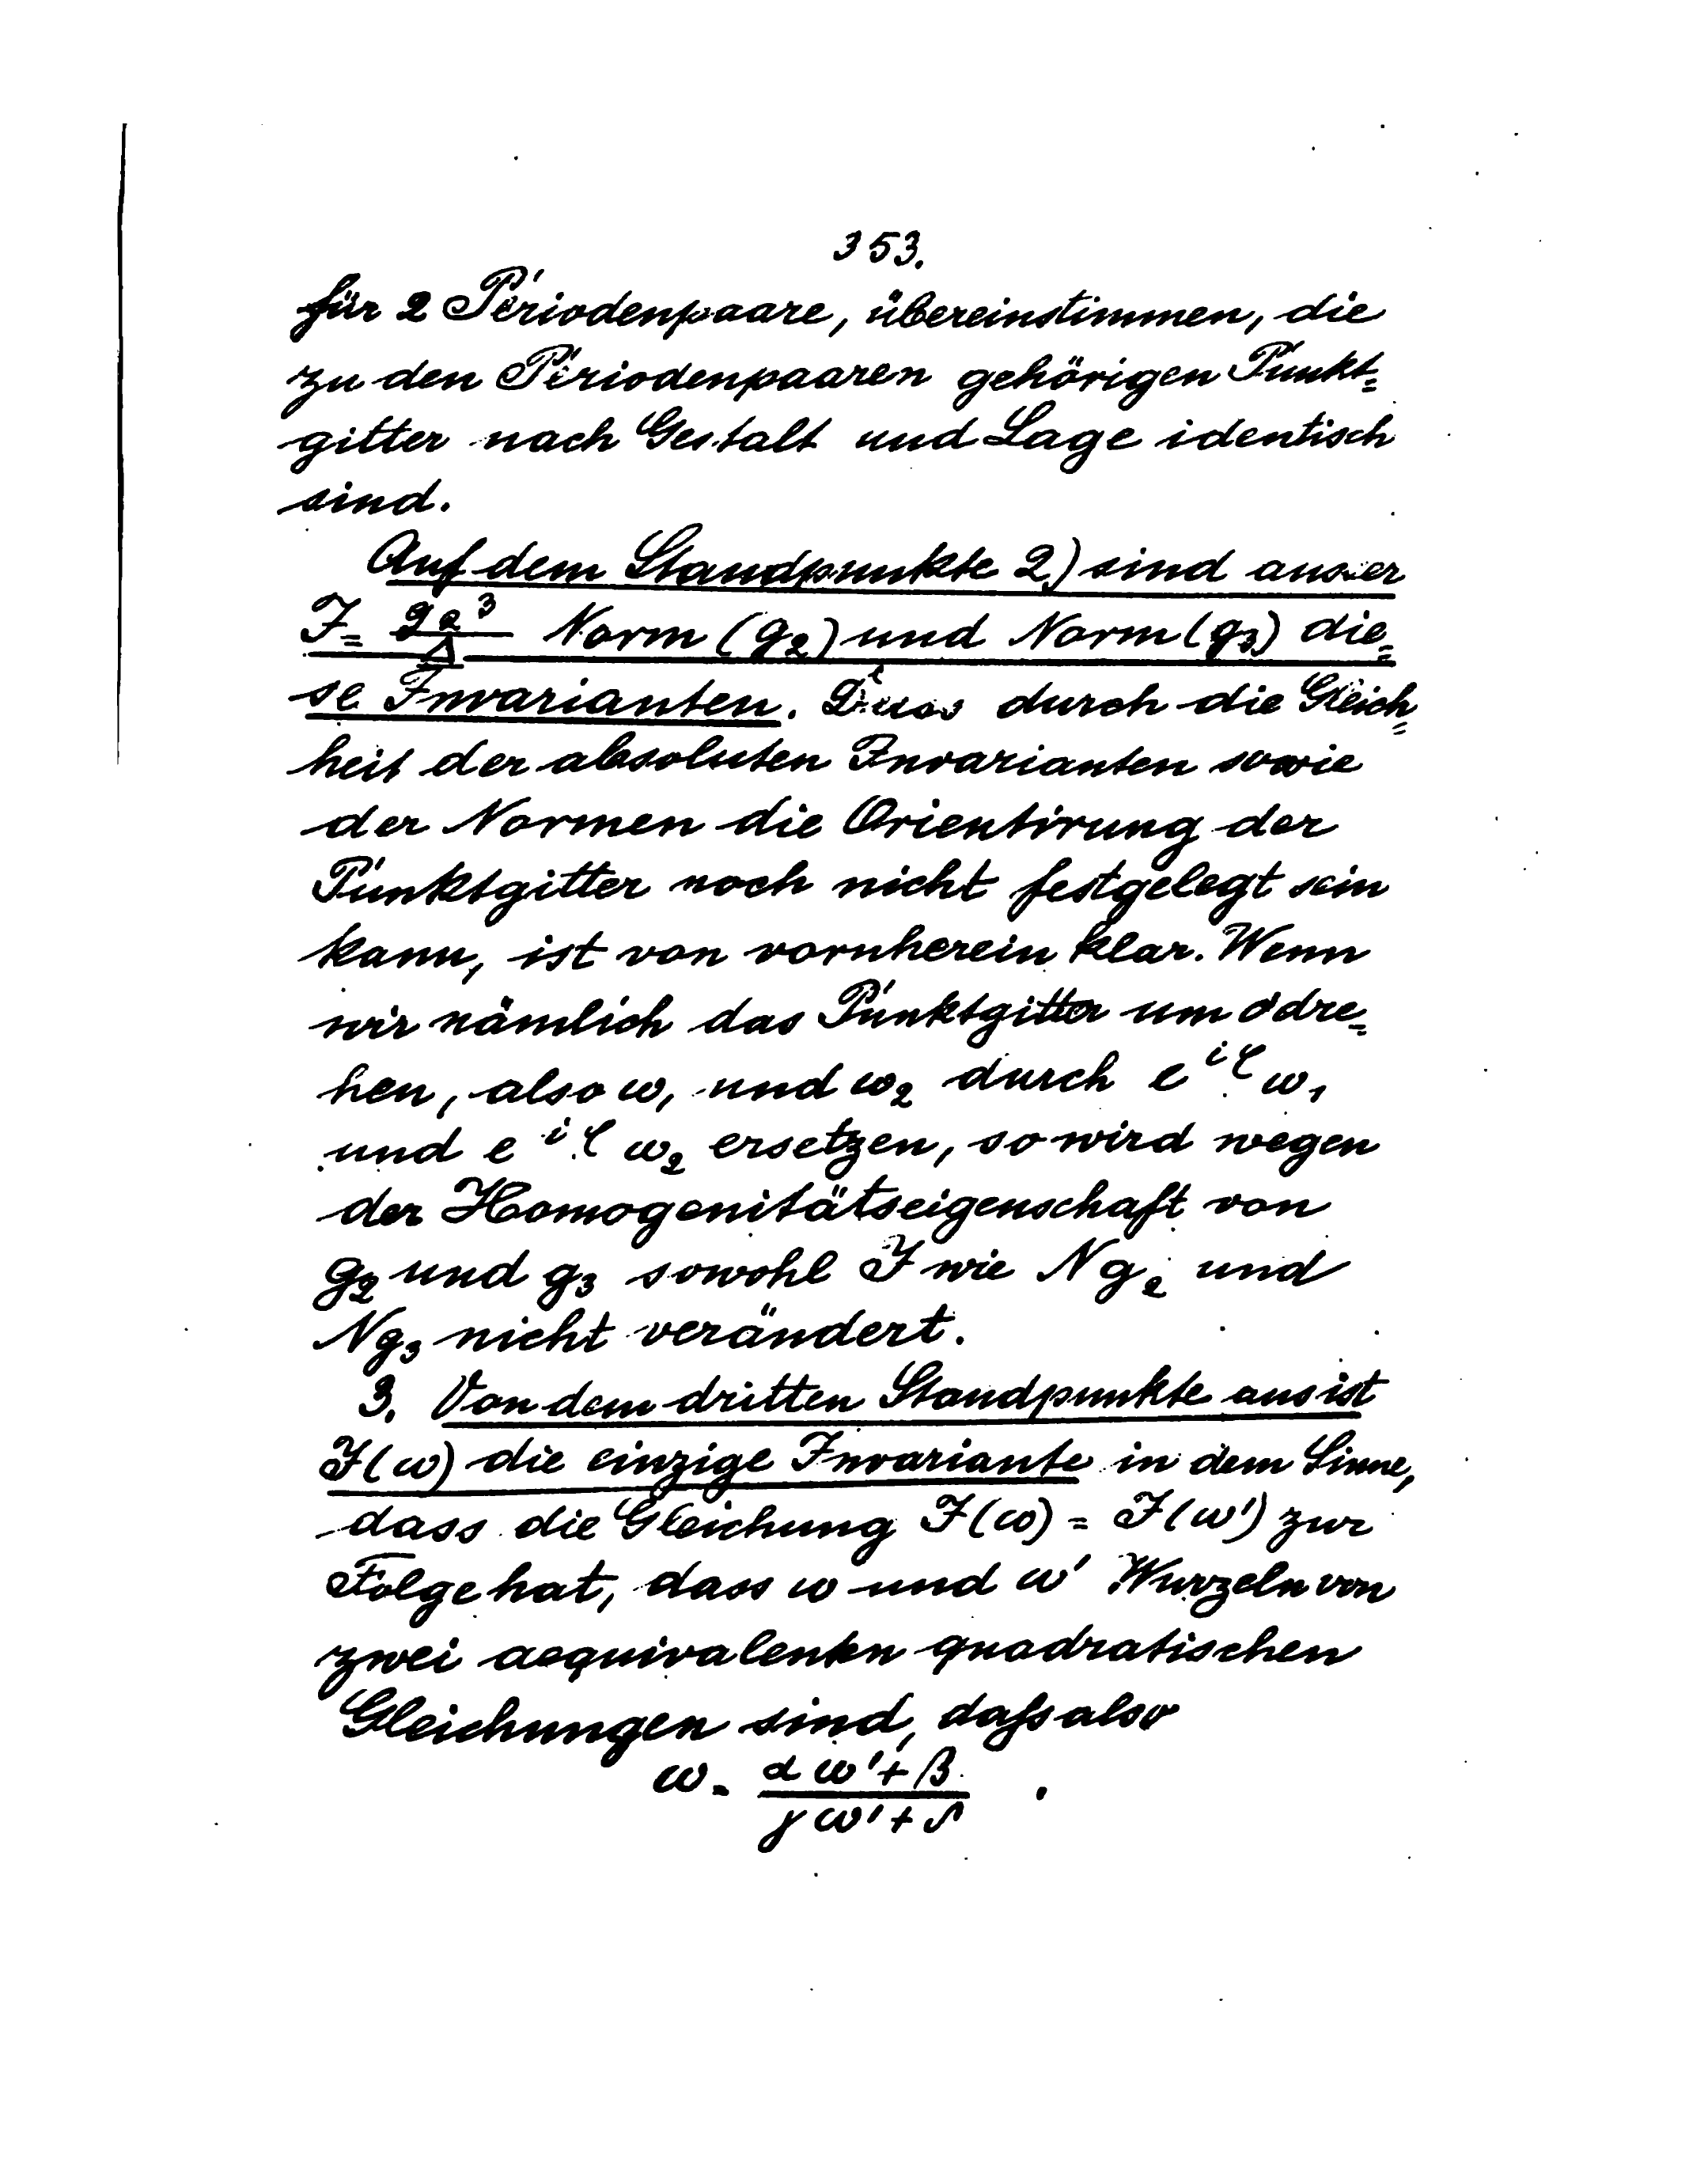 353.
für 2 Periodenpaare, übereinstimmen, die
zu den Periodenpaaren gehörigen Punkt=
gitter nach Gestalt und Lage identisch
sind.
Auf dem Standpunkte 2) sind ausser
J = g₂³/Δ Norm (g₂) und Norm (g₃) die=
se Invarianten. Dass durch die Gleich=
heit der absoluten Invarianten sowie
der Normen die Orientirung der
Punktgitter noch nicht festgelegt sein
kann, ist von vornherein klar. Wenn
wir nämlich das Punktgitter um dre=
hen, also ω₁ und ω₂ durch e^{iφ} ω₁
und e^{iφ} ω₂ ersetzen, so wird wegen
der Homogenitätseigenschaft von
g₂ und g₃ sowohl J wie N g₂ und
N g₃ nicht verändert.
3. Von dem dritten Standpunkte aus ist
J(ω) die einzige Invariante in dem Sinne,
dass die Gleichung J(ω) = J(ω') zur
Folge hat, dass ω und ω' Wurzeln von
zwei aequivalenten quadratischen
Gleichungen sind, daß also
ω = (α ω' + β)/(γ ω' + δ) .